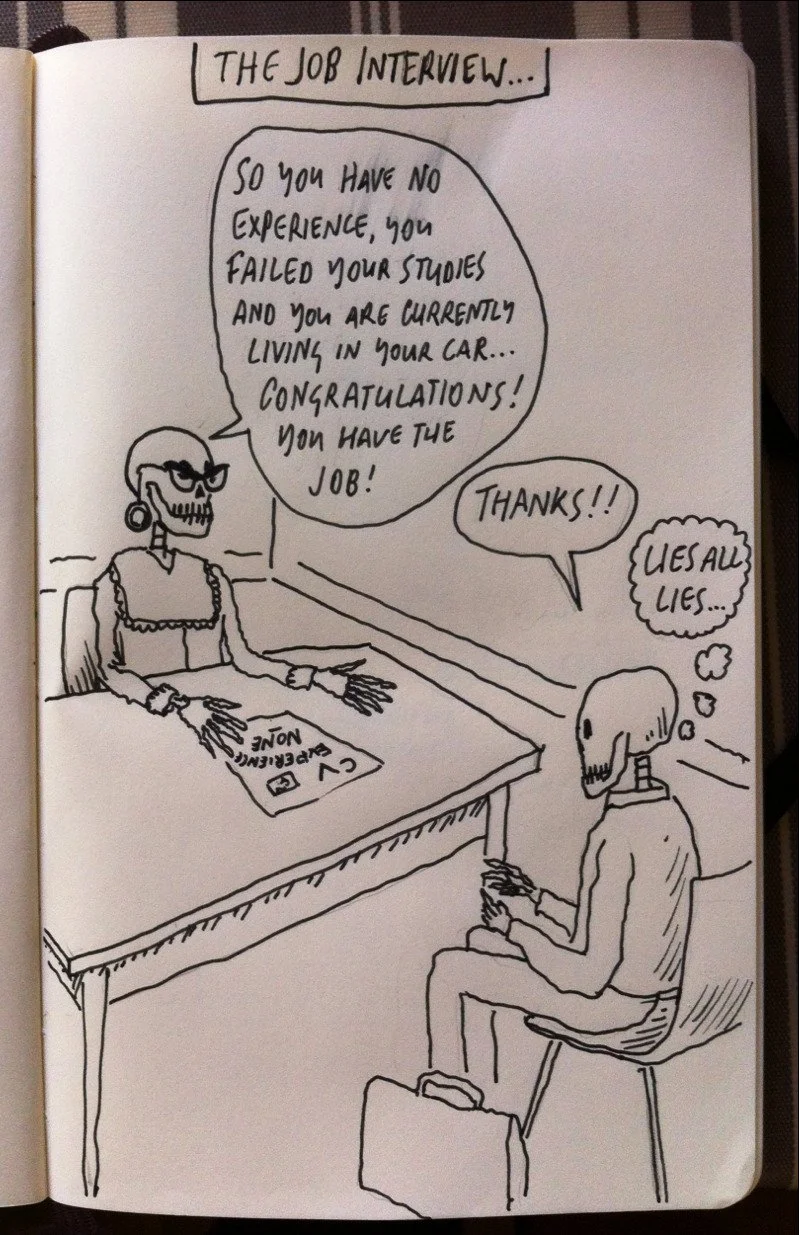 THE JOB INTERVIEW...
SO YOU HAVE NO
EXPERIENCE, YOU
FAILED YOUR STUDIES
AND YOU ARE CURRENTLY
LIVING IN YOUR CAR...
CONGRATULATIONS!
YOU HAVE THE
JOB!
THANKS!!
LIES ALL
LIES...
CV
EXPERIENCE
NONE